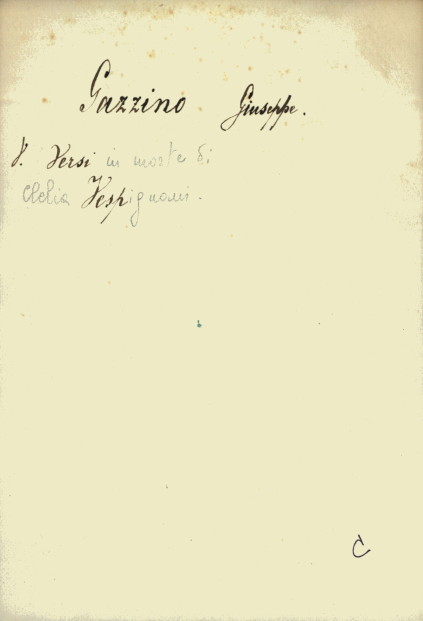 Gazzino Giuseppe.
V. Versi in morte di
Clelia Vespignani.
C